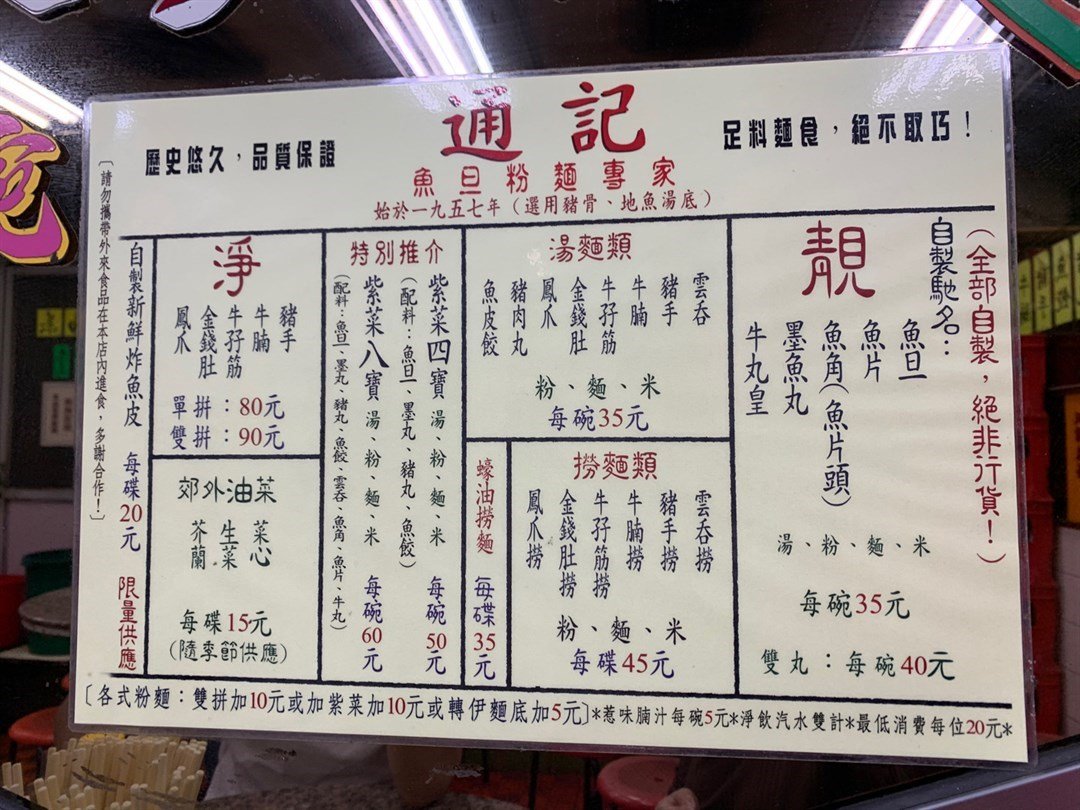 通記
歷史悠久，品質保證
足料麵食，絕不取巧！
魚旦粉麵專家
始於一九五七年（選用豬骨、地魚湯底）
（全部自製，絕非行貨！）
自製馳名：
靚
魚旦
魚片
魚角（魚片頭）
墨魚丸
牛丸皇
湯、粉、麵、米
每碗35元
雙丸：每碗40元
湯麵類
雲吞
豬手
牛腩
牛孖筋
金錢肚
鳳爪
豬肉丸
魚皮餃
粉、麵、米
每碗35元
撈麵類
雲吞撈
豬手撈
牛腩撈
牛孖筋撈
金錢肚撈
鳳爪撈
粉、麵、米
每碟45元
蠔油撈麵 每碟35元
特別推介
紫菜四寶 湯、粉、麵、米 每碗50元
（配料：魚旦、墨丸、豬丸、魚餃）
紫菜八寶 湯、粉、麵、米 每碗60元
（配料：魚旦、墨丸、豬丸、魚餃、雲吞、魚角、魚片、牛丸）
淨
豬手
牛腩
牛孖筋
金錢肚
鳳爪
單拼：80元
雙拼：90元
郊外油菜
菜心
生菜
芥蘭
每碟15元
（隨季節供應）
自製新鮮炸魚皮 每碟20元 限量供應
〔請勿攜帶外來食品在本店內進食，多謝合作！〕
〔各式粉麵：雙拼加10元或加紫菜加10元或轉伊麵底加5元〕*惹味腩汁每碗5元*淨飲汽水雙計*最低消費每位20元*